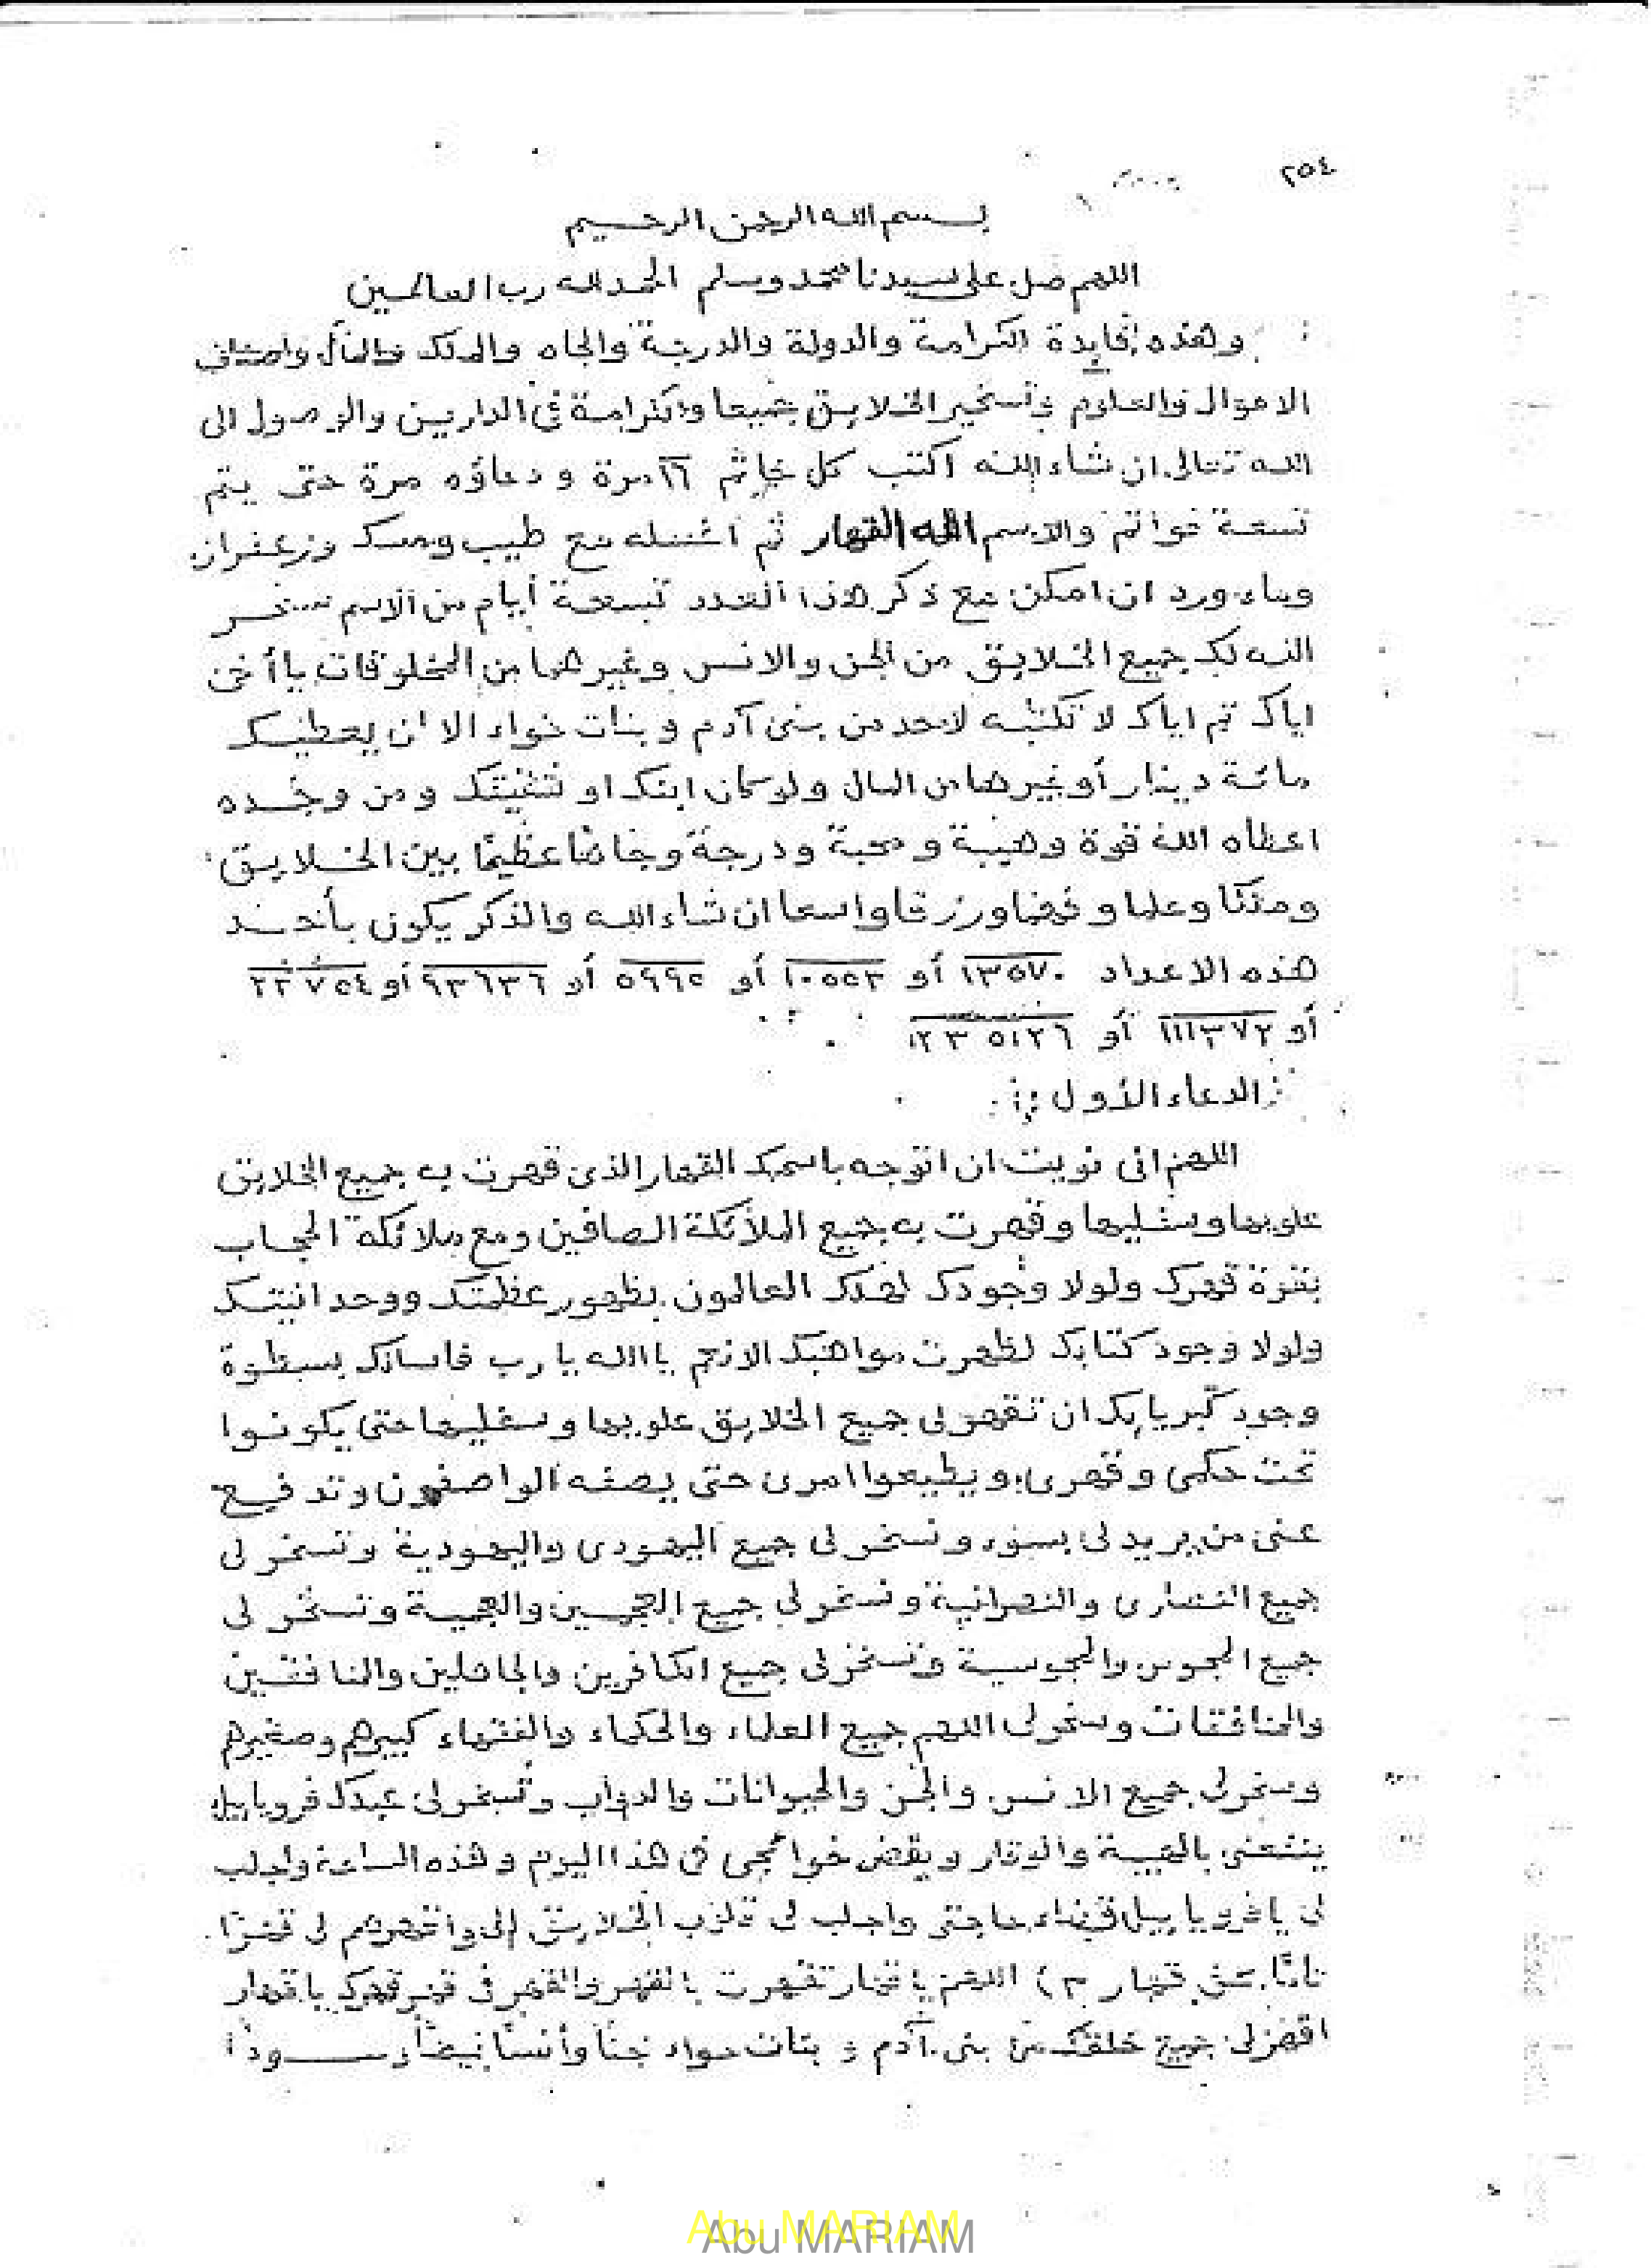 ٢٥٤
بسم الله الرحمن الرحيم
اللهم صل على سيدنا محمد وسلم الحمد لله رب العالمين
وهذه فايدة الكرامة والدولة والدرجة والجاه والملك والمال واصناف
الاموال والعلوم وتسخير الخلايق جميعا والكرامة في الدارين والوصول الى
الله تعالى ان شاء الله اكتب كل خاتم ٦٦ مرة ودعاؤه مرة حتى يتم
تسعة خواتم والاسم الله القهار ثم اغسله مع طيب ومسك وزعفران
وماء ورد ان امكن مع ذكر هذا العدد تسعة أيام من الاسم سخر
الله لك جميع الخلايق من الجن والانس وغيرهما من المخلوقات يا أخى
اياك ثم اياك لا تكتبه لاحد من بنى آدم وبنات حواء الا ان يعطيك
مائة دينار أو غيرها من المال ولو كان ابنك او ومن وجده
اعطاه الله قوة وهيبة ومحبة ودرجة وجاها عظيما بين الخلايق
وملكا وعلما وفهما ورزقا واسعا ان شاء الله والذكر يكون بأحد
هذه الاعداد ١٣٥٧٠ أو ١٠٥٥٣ أو ٥٩٩٥ أو ٩٣٦٣٦ أو ٢٢٧٥٤
أو ١١١٣٧٢ أو ١٢٣٥١٢٦
الدعاء الأول
اللهم انى نويت ان اتوجه باسمك القهار الذى قهرت به جميع الخلايق
علويها وسفليها وقهرت به جميع الملائكة الصافين ومع ملائكة الحجاب
بقوة قهرك ولولا وجودك لهلك العالمون بظهور عظمتك ووحدانيتك
ولولا وجود كتابك لظهرت مواهبك يا الله يا رب فاسالك بسطوة
وجود كبريايك ان تقهر لى جميع الخلايق علويها وسفليها حتى يكونوا
تحت حكمى وقهرى ويطيعوا امرى حتى يصفه الواصفون وتدفع
عنى من يريد لى بسوء وتسخر لى جميع اليهودى واليهودية وتسخر لى
جميع النصارى والنصرانية وتسخر لى جميع العجميين والعجمية وتسخر لى
جميع المجوس والمجوسية وتسخر لى جميع الكافرين والجاهلين والمنافقين
والمنافقات وسخر لى اللهم جميع العلماء والحكماء والفقهاء كبيرهم وصغيرهم
وسخر لى جميع الانس والجن والحيوانات والدواب وتسخر لى عبدك فرويابيل
ينفعنى بالهيبة والوقار ويقضى حوائجى فى هذا اليوم وهذه الساعة واجلب
لى يا فرويابيل قضاء حاجتى واجلب لى قلوب الخلايق إلى واقهرهم لى قهرا
تاما بحق قهار ٣) اللهم يا قهار تقهرت بالقهر والقهر فى قهر قهرك يا قهار
اقهر لى جميع خلقك من بنى آدم و بنات حواء جنا وأنسا بيضا وسودا
Abu MARIAM